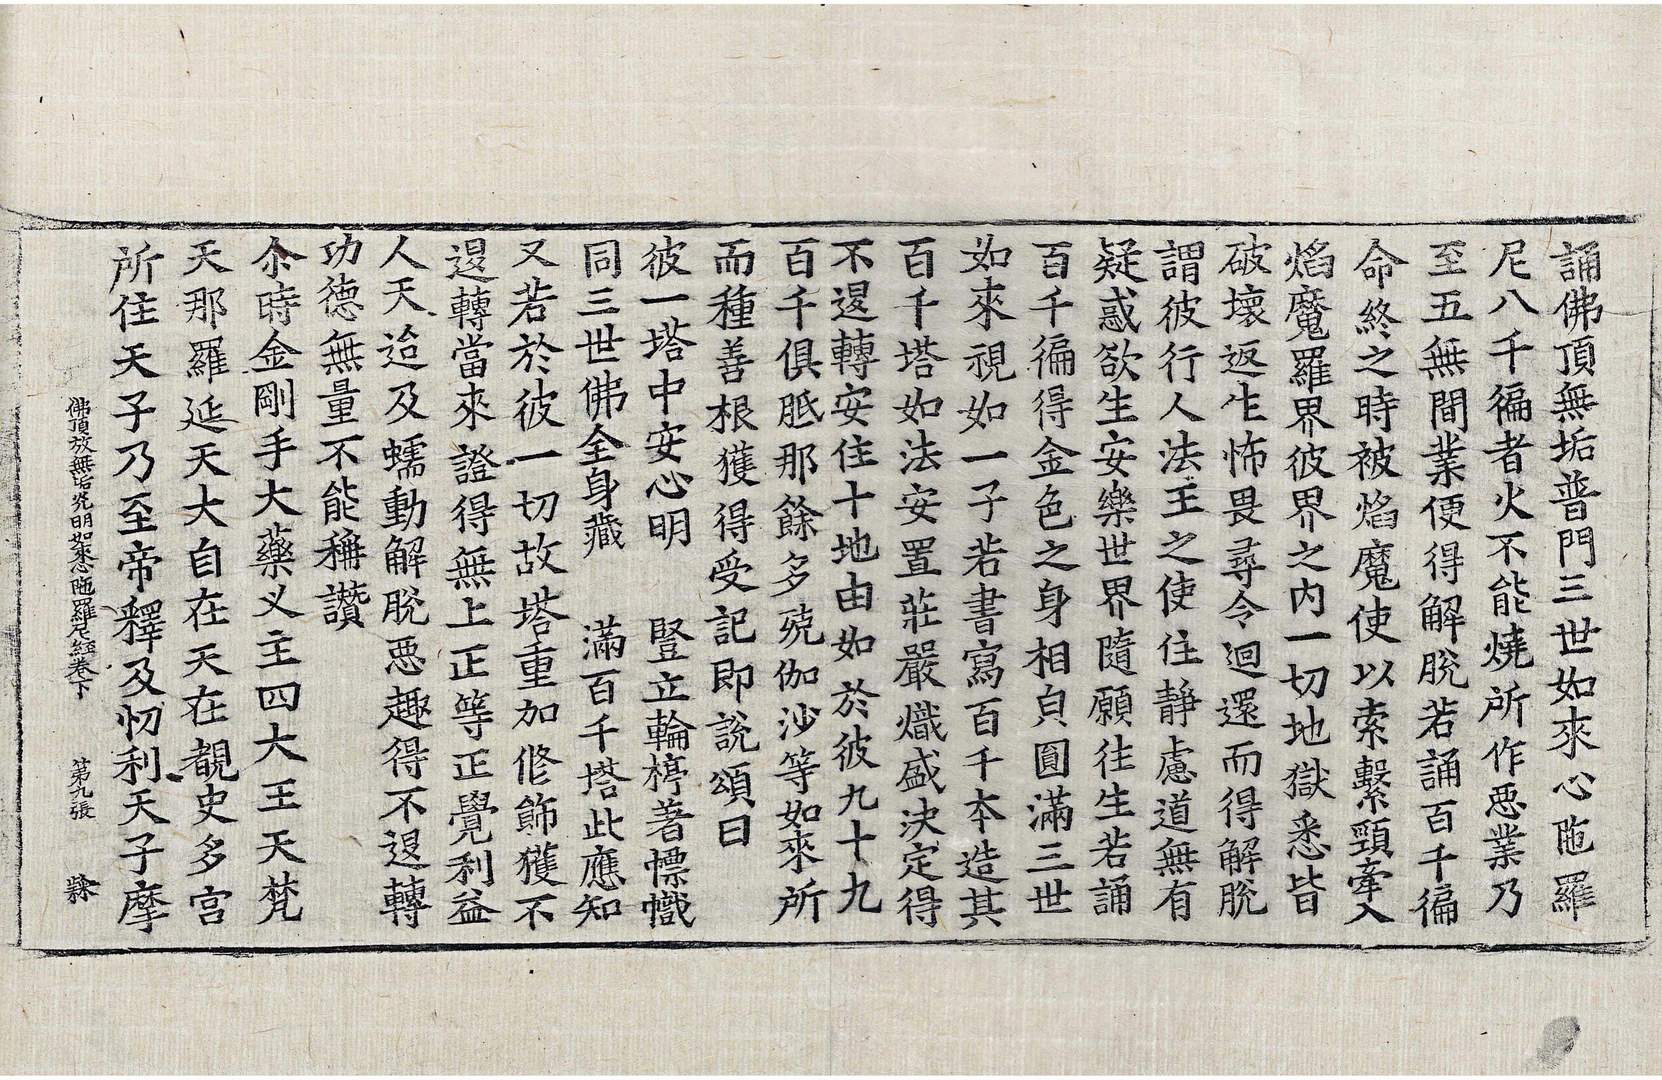 誦佛頂無垢普門三世如來心陁羅
尼八千徧者火不能燒所作惡業乃
至五無間業便得解脫若誦百千徧
命終之時被焰魔使以索繫頸牽入
焰魔羅界彼界之內一切地獄悉皆
破壞返生怖畏尋令迴還而得解脫
謂彼行人法王之使住靜慮道無有
疑惑欲生安樂世界隨願往生若誦
百千徧得金色之身相皃圓滿三世
如來視如一子若書寫百千本造其
百千塔如法安置莊嚴熾盛決定得
不退轉安住十地由如於彼九十九
百千俱胝那餘多殑伽沙等如來所
而種善根獲得受記即說頌曰
彼一塔中安心明　豎立輪㭔著幖幟
同三世佛全身藏　滿百千塔此應知
又若於彼一切故塔重加修飾獲不
退轉當來證得無上正等正覺利益
人天迨及蠕動解脫惡趣得不退轉
功德無量不能稱讚
尒時金剛手大藥义主四大王天梵
天那羅延天大自在天在覩史多宮
所住天子乃至帝釋及忉利天子摩
佛頂放無垢光明如來陁羅尼經卷下　第九張